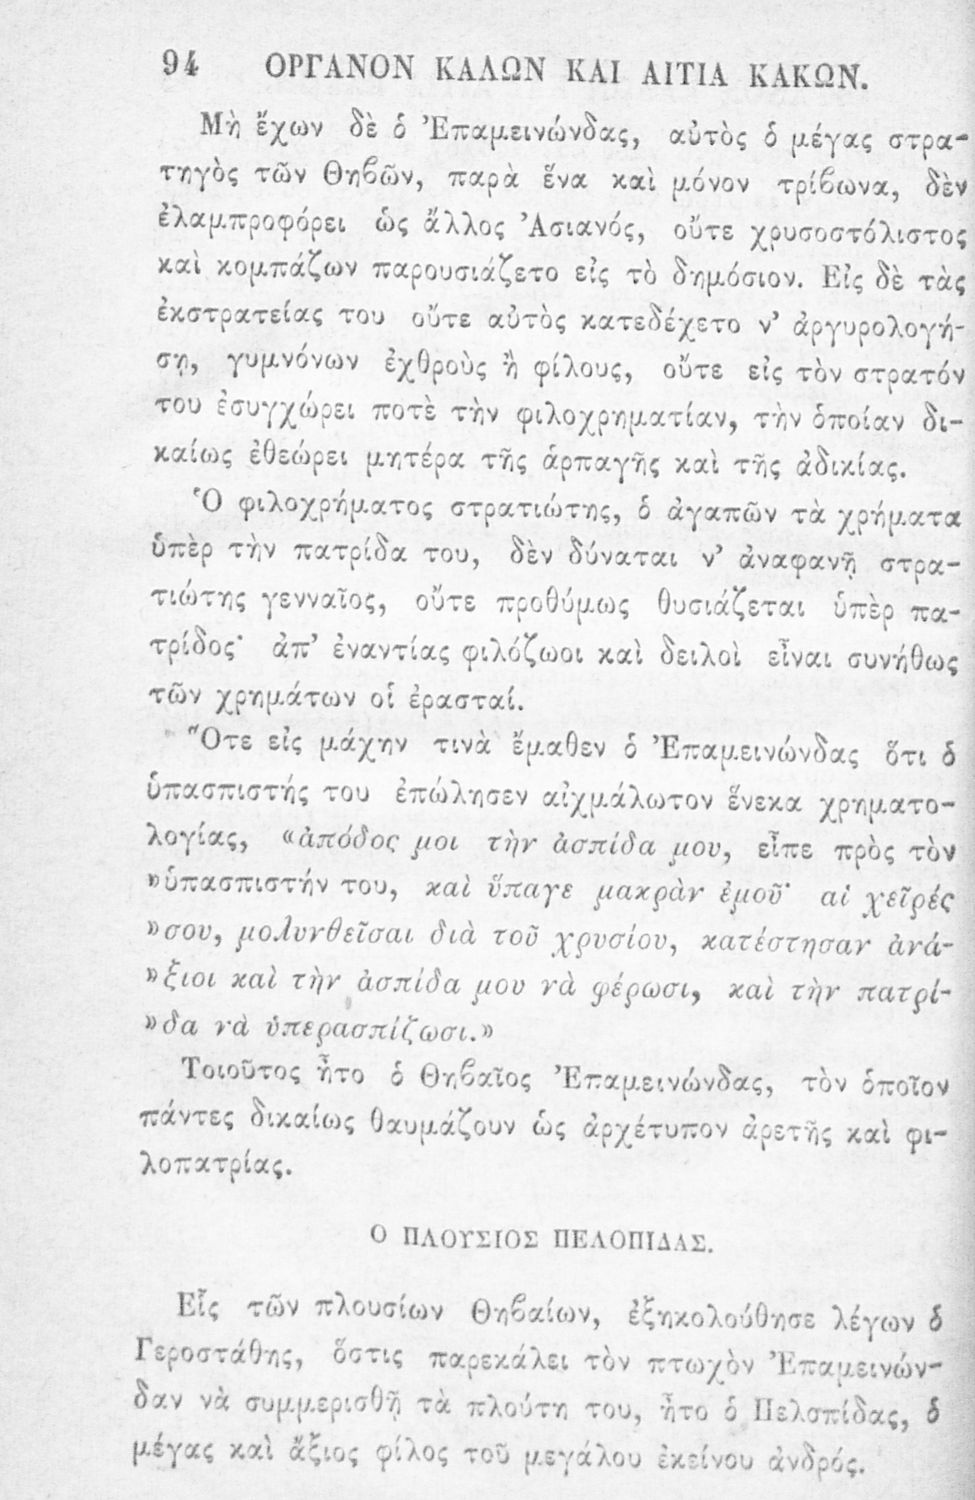 94 ΟΡΓΑΝΟΝ ΚΑΛΩΝ ΚΑΙ ΑΙΤΙΑ ΚΑΚΩΝ.
Μὴ ἔχων δὲ ὁ Ἐπαμεινώνδας, αὐτὸς ὁ μέγας στρα-
τηγὸς τῶν Θηβῶν, παρὰ ἕνα καὶ μόνον τρίβωνα, δὲν
ἐλαμπροφόρει ὡς ἄλλος Ἀσιανός, οὔτε χρυσοστόλιστος
καὶ κομπάζων παρουσιάζετο εἰς τὸ δημόσιον. Εἰς δὲ τὰς
ἐκστρατείας του οὔτε αὐτὸς κατεδέχετο ν' ἀργυρολογή-
σῃ, γυμνόνων ἐχθροὺς ἢ φίλους, οὔτε εἰς τὸν στρατόν
του ἐσυγχώρει ποτὲ τὴν φιλοχρηματίαν, τὴν ὁποίαν δι-
καίως ἐθεώρει μητέρα τῆς ἁρπαγῆς καὶ τῆς ἀδικίας.
Ὁ φιλοχρήματος στρατιώτης, ὁ ἀγαπῶν τὰ χρήματα
ὑπὲρ τὴν πατρίδα του, δὲν δύναται ν' ἀναφανῇ στρα-
τιώτης γενναῖος, οὔτε προθύμως θυσιάζεται ὑπὲρ πα-
τρίδος· ἀπ' ἐναντίας φιλόζωοι καὶ δειλοὶ εἶναι συνήθως
τῶν χρημάτων οἱ ἐρασταί.
Ὅτε εἰς μάχην τινὰ ἔμαθεν ὁ Ἐπαμεινώνδας ὅτι ὁ
ὑπασπιστής του ἐπώλησεν αἰχμάλωτον ἕνεκα χρηματο-
λογίας, «ἀπόδος μοι τὴν ἀσπίδα μου, εἶπε πρὸς τὸν
»ὑπασπιστήν του, καὶ ὕπαγε μακρὰν ἐμοῦ· αἱ χεῖρές
»σου, μολυνθεῖσαι διὰ τοῦ χρυσίου, κατέστησαν ἀνά-
»ξιοι καὶ τὴν ἀσπίδα μου νὰ φέρωσι, καὶ τὴν πατρί-
»δα νὰ ὑπερασπίζωσι.»
Τοιοῦτος ἦτο ὁ Θηβαῖος Ἐπαμεινώνδας, τὸν ὁποῖον
πάντες δικαίως θαυμάζουν ὡς ἀρχέτυπον ἀρετῆς καὶ φι-
λοπατρίας.
Ο ΠΛΟΥΣΙΟΣ ΠΕΛΟΠΙΔΑΣ.
Εἷς τῶν πλουσίων Θηβαίων, ἐξηκολούθησε λέγων ὁ
Γεροστάθης, ὅστις παρεκάλει τὸν πτωχὸν Ἐπαμεινών-
δαν νὰ συμμερισθῇ τὰ πλούτη του, ἦτο ὁ Πελοπίδας, ὁ
μέγας καὶ ἄξιος φίλος τοῦ μεγάλου ἐκείνου ἀνδρός.